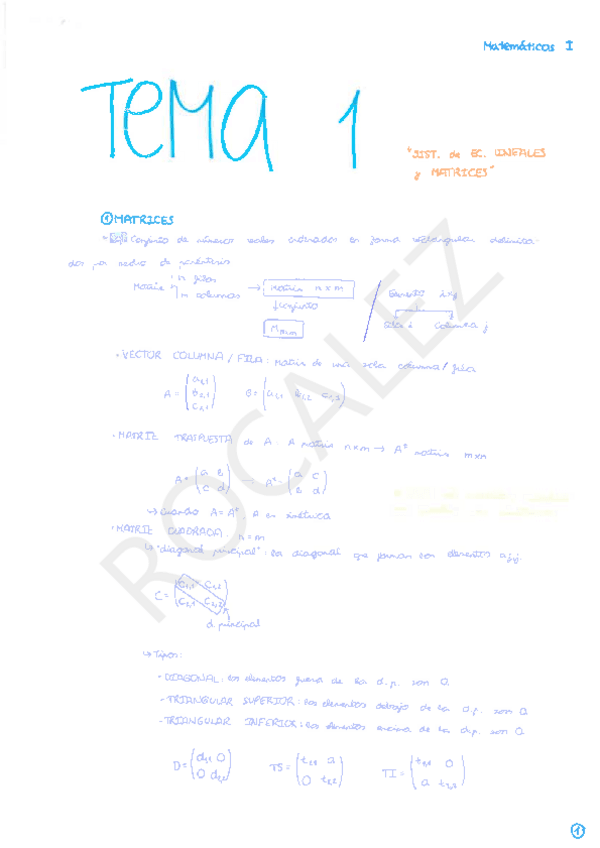 Matemáticas I
TEMA 1
"SIST. de EC. LINEALES
y MATRICES"
① MATRICES
Conjunto de números reales ordenados en forma rectangular delimita-
dos por medio de paréntesis
Matriz n filas
m columnas → Matriz n x m
conjunto
Elemento
fila i columna j
· VECTOR COLUMNA / FILA: Matriz de una sola columna / fila
A =
B =
· MATRIZ TRASPUESTA de A: A matriz n x m → Aᵗ matriz m x n
A = (a b) → Aᵗ = (a c)
(c d) (b d)
↳ Cuando A = Aᵗ, A es simétrica
· MATRIZ CUADRADA: n = m
↳ "diagonal principal": la diagonal que forman los elementos
C = (C1,1 C1,2)
(C2,1 C2,2)
d. principal
↳ Tipos:
- DIAGONAL: los elementos fuera de la d.p. son 0
- TRIANGULAR SUPERIOR: los elementos debajo de la d.p. son 0
- TRIANGULAR INFERIOR: los elementos encima de la d.p. son 0
D = TS = TI =
ROCALEZ
①